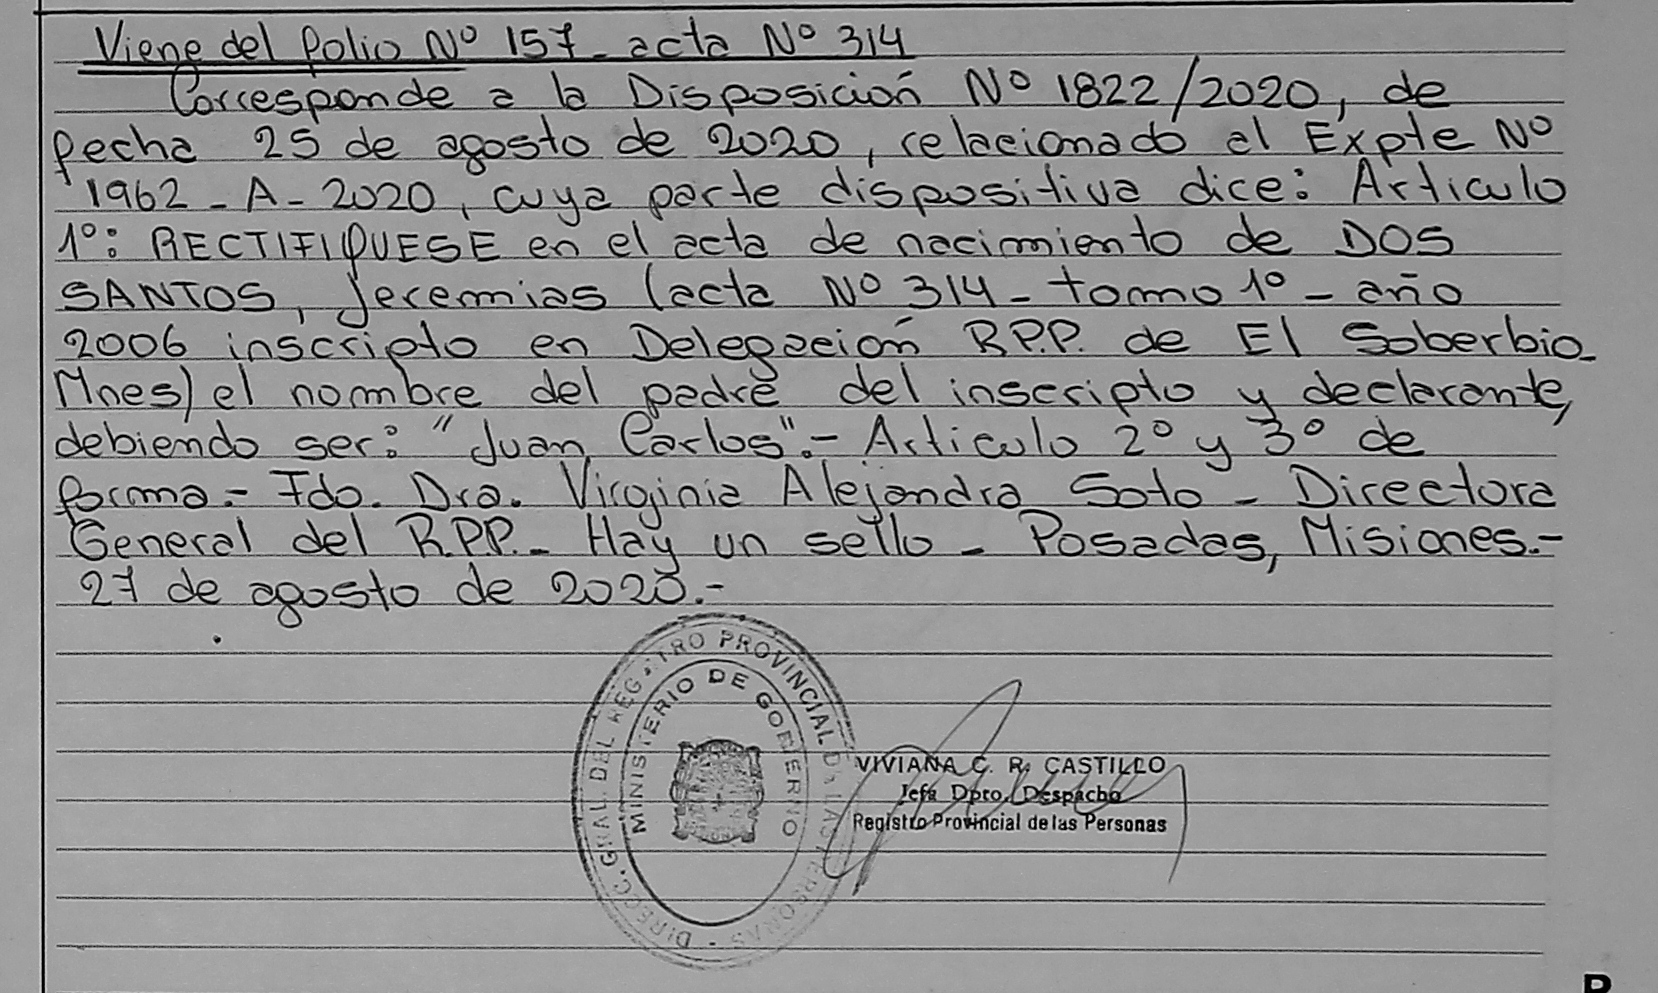 Viene del folio Nº 157 - acta Nº 314
Corresponde a la Disposición Nº 1822/2020, de
fecha 25 de agosto de 2020, relacionado al Expte Nº
1962 - A - 2020, cuya parte dispositiva dice: Articulo
1º: RECTIFIQUESE en el acta de nacimiento de DOS
SANTOS, Jeremias (acta Nº 314 - tomo 1º - año
2006 inscripto en Delegación R.P.P. de El Soberbio -
Mnes) el nombre del padre del inscripto y declarante,
debiendo ser: "Juan Carlos".- Articulo 2º y 3º de
forma.- Fdo. Dra. Virginia Alejandra Soto - Directora
General del R.P.P. - Hay un sello - Posadas, Misiones.-
27 de agosto de 2020.-
DIRECC. GRAL. DEL REGISTRO PROVINCIAL DE LAS PERSONAS
MINISTERIO DE GOBIERNO
VIVIANA C. R. CASTILLO
Jefa Dpto. Despacho
Registro Provincial de las Personas